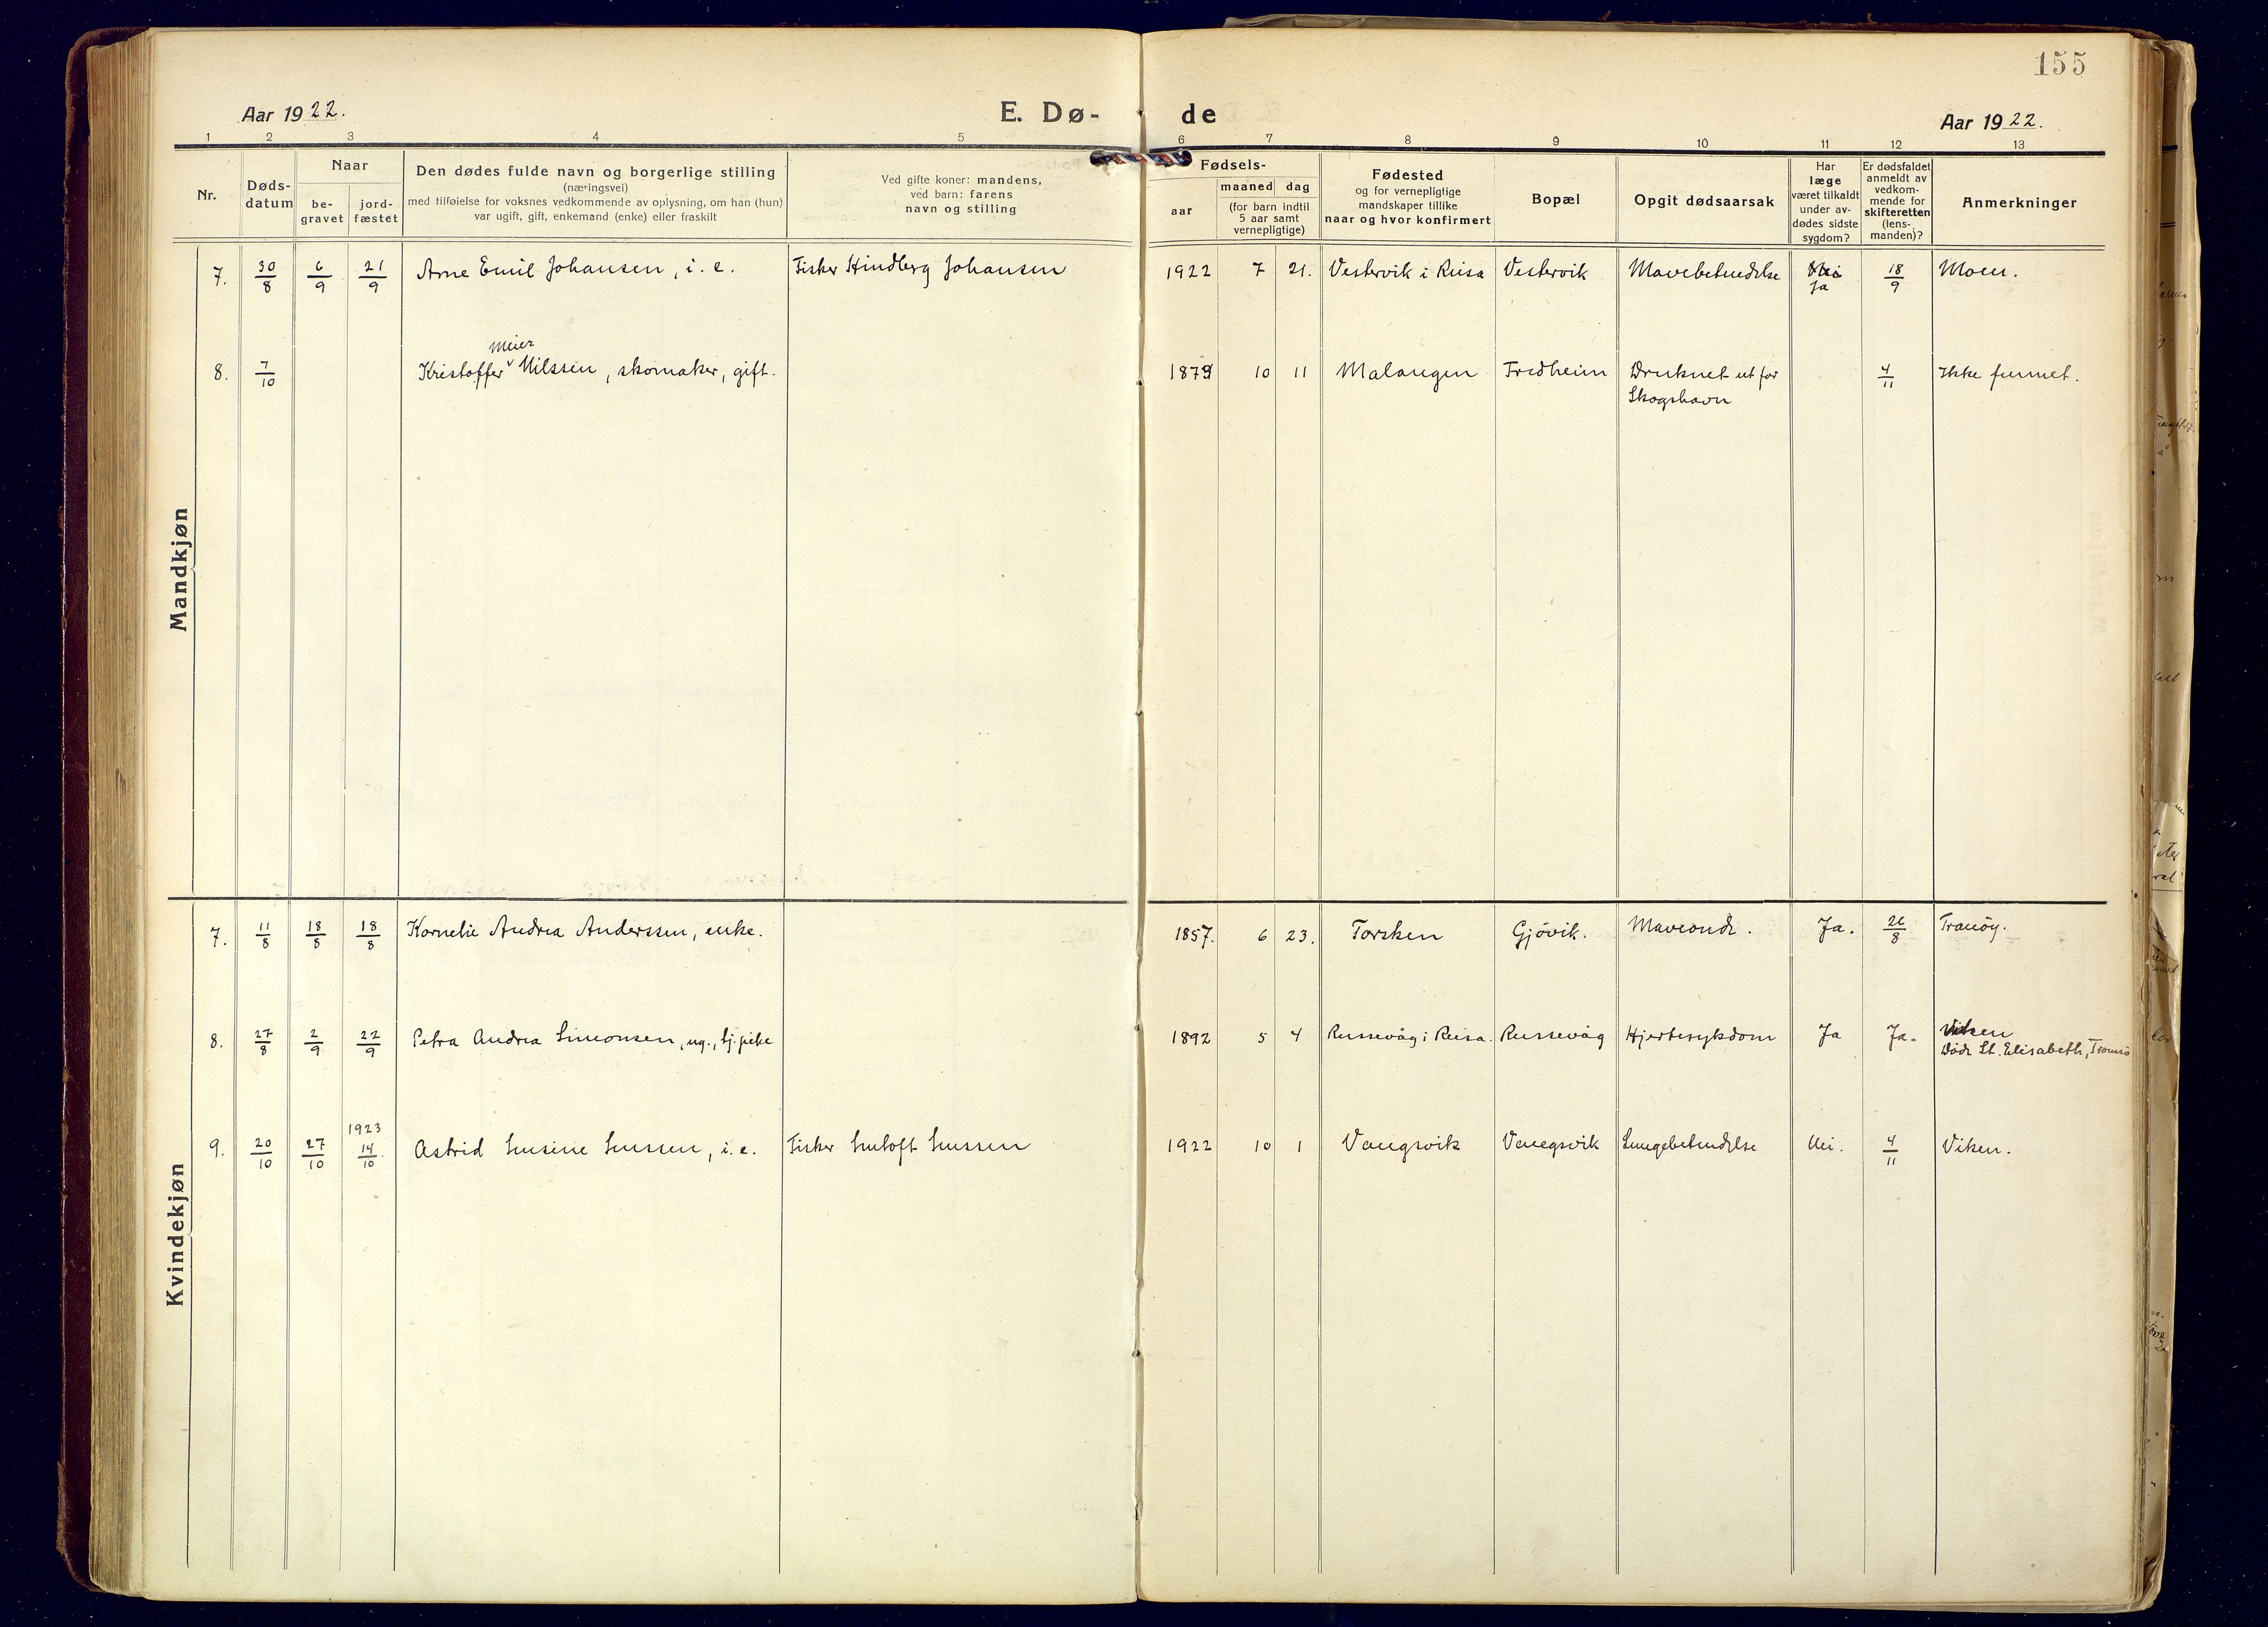 155
Aar 1922.
E. Dø-
de
Aar 1922.
1 2 3 4 5 6 7 8 9 10 11 12 13
Nr.
Døds-
datum
Naar
be-
gravet
jord-
fæstet
Den dødes fulde navn og borgerlige stilling
(næringsvei)
med tilføielse for voksnes vedkommende av oplysning, om han (hun)
var ugift, gift, enkemand (enke) eller fraskilt
Ved gifte koner: mandens,
ved barn: farens
navn og stilling
Fødsels-
aar
maaned dag
(for barn indtil
5 aar samt
vernepligtige)
Fødested
og for vernepligtige
mandskaper tillike
naar og hvor konfirmert
Bopæl
Opgit dødsaarsak
Har
læge
været tilkaldt
under av-
dødes sidste
sygdom?
Er dødsfaldet
anmeldt av
vedkom-
mende for
skifteretten
(lens-
manden)?
Anmerkninger
Mandkjøn
7. 30/8 6/9 21/9 Arne Emil Johansen, i. e. Fisker Hindberg Johansen 1922 7 21. Vestervik i Reisa Vestervik Mavebetendelse Nei 18/9 Moen.
Ja
Meier
8. 7/10 Kristoffer Nilssen, skomaker, gift. 1879 10 11 Malangen Fredheim Druknet ut for 4/11 Ikke funnet.
Skogshavn
Kvindekjøn
7. 11/8 18/8 18/8 Kornelie Andrea Anderssen, enke. 1857. 6 23. Torsken Gjövik. Maveonde. Ja. 26/8 Tranöy.
8. 27/8 2/9 22/9 Petra Andrea Simonsen, ug., tj. pike 1892 5 4 Russevåg i Reisa. Russevåg Hjertesykdom Ja Ja. Viken
Döde St. Elisabeth, Tromsö
1923
9. 20/10 27/10 14/10 Astrid Lusine Lussen, i. e. Fisker Lutoft Lussen 1922 10 1 Vangsvik Vangsvik Lungebetendelse Nei. 4/11 Viken.